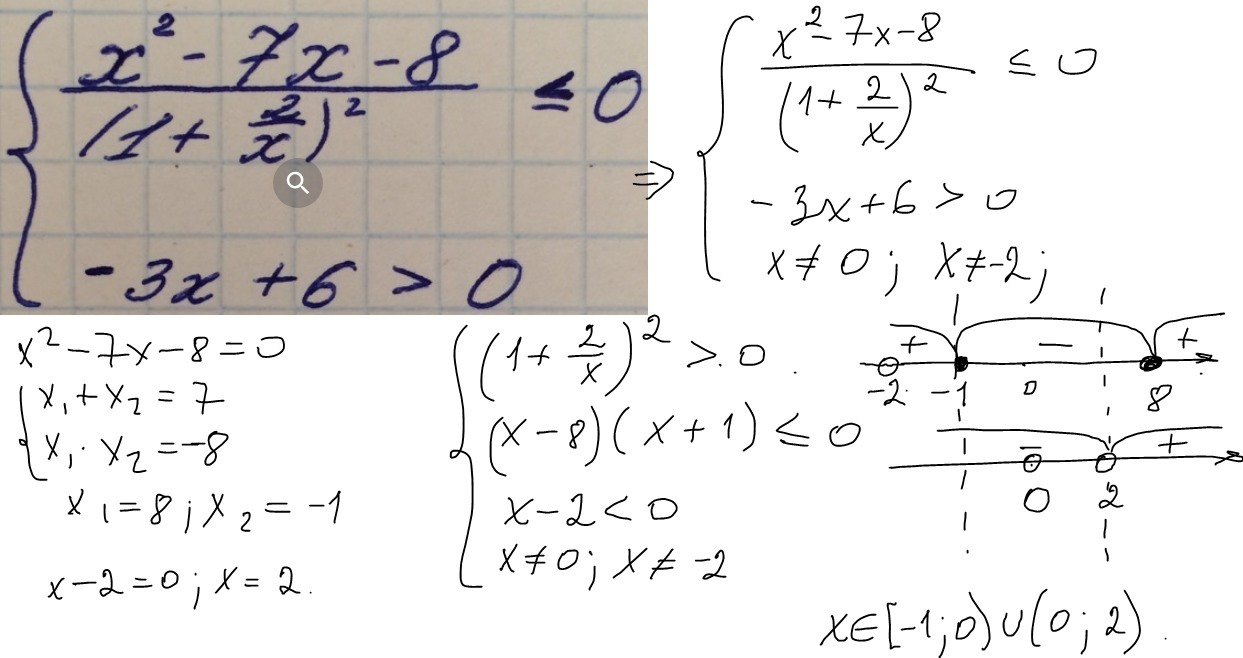 x² - 7x - 8 / (1 + 2/x)² ≤ 0
-3x + 6 > 0
⇒
x² - 7x - 8 / (1 + 2/x)² ≤ 0
-3x + 6 > 0
x ≠ 0 ; x ≠ -2 ;
x² - 7x - 8 = 0
x₁ + x₂ = 7
x₁ · x₂ = -8
x₁ = 8 ; x₂ = -1
x - 2 = 0 ; x = 2.
(1 + 2/x)² > 0
(x - 8)(x + 1) ≤ 0
x - 2 < 0
x ≠ 0 ; x ≠ -2
+ − +
-2 -1 0 8
− +
0 2
x ∈ [-1 ; 0) ∪ (0 ; 2).